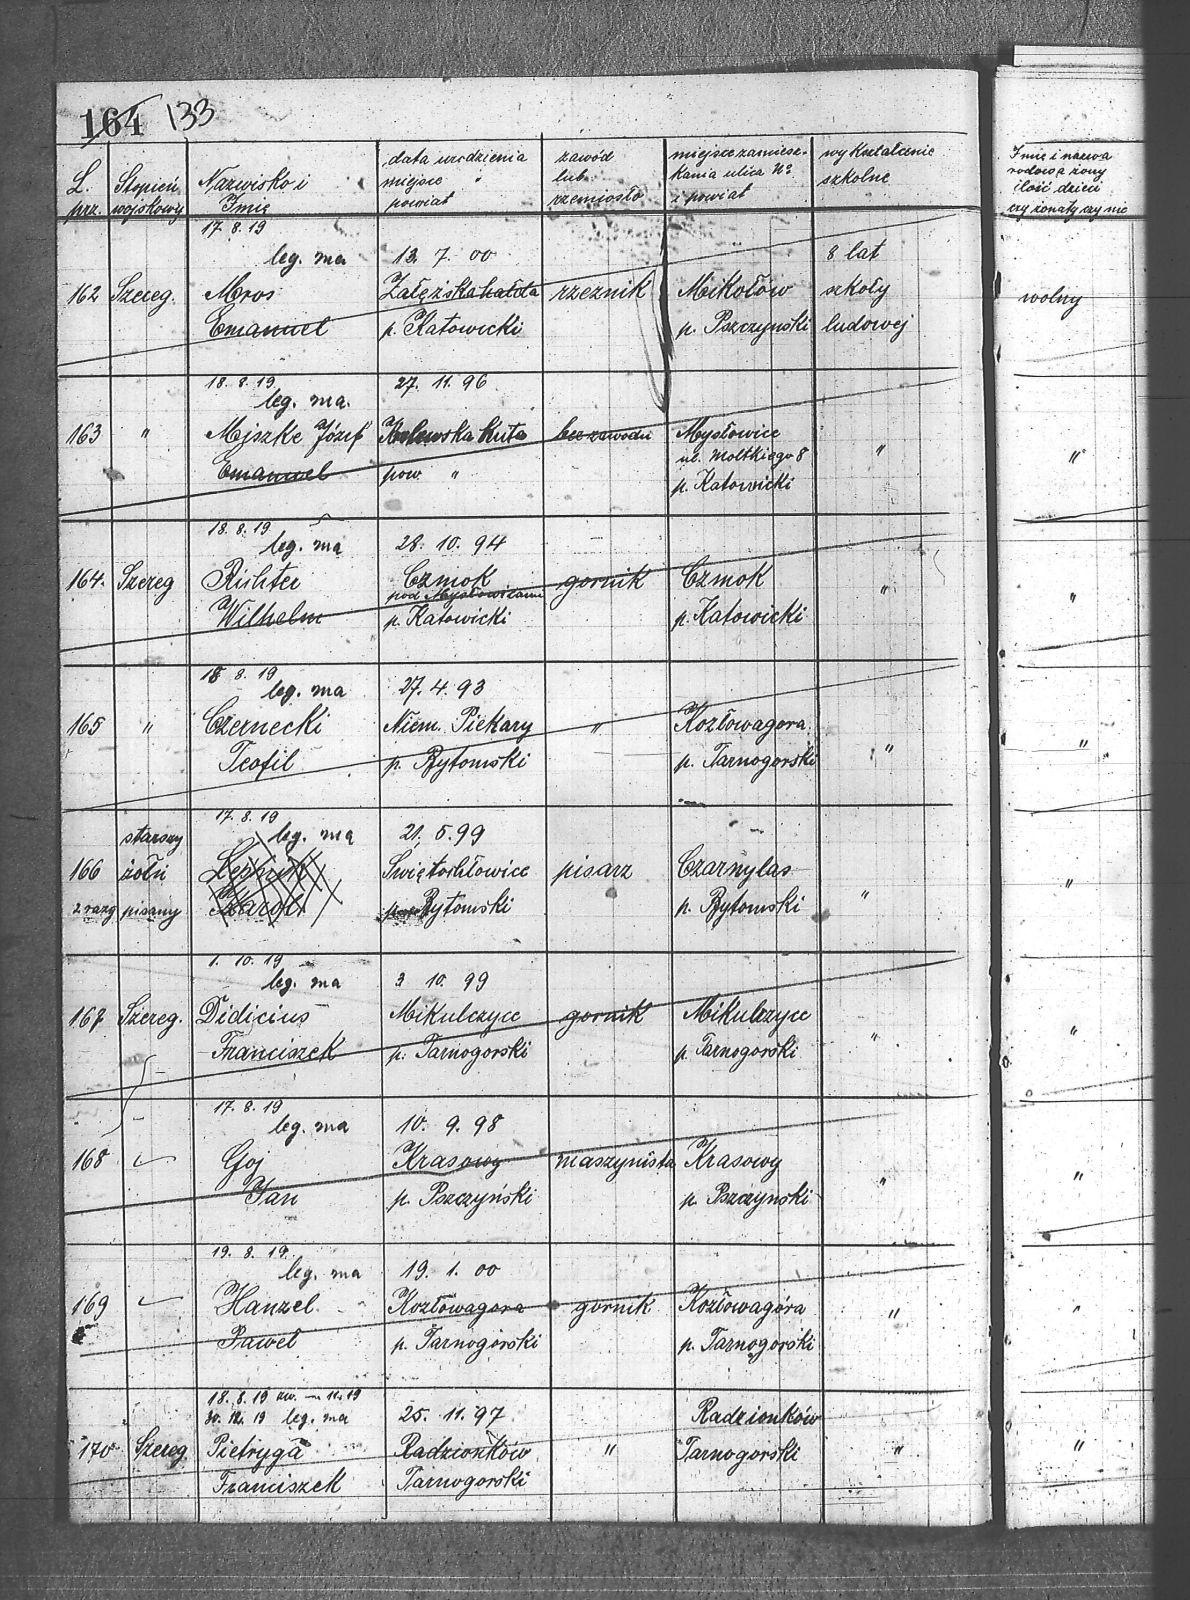 164 133
L. prz.
Stopień wojskowy
Nazwisko i Imię
data urodzienia miejsce powiat
zawód lub rzemiosło
miejsce zamiesz- kania ulica No i powiat
wykształcenie szkolne
Imię i nazwa rodowa żony ilość dzieci czy żonaty czy nie
17. 8. 19
leg. ma 12. 7. 00 8 lat
162 Szereg. Mros Załęzskahałda rzeznik Mikołów szkoły wolny
Emanuel p. Katowicki p. Pszczyński ludowej
18. 8. 19 27. 11. 96
leg. ma.
163 " Mejszke Józef huta bez zawodu Mysłowice " "
Emanuel pow. " ul. Moltkiego 8
p. Katowicki
18. 8. 19
leg. ma 28. 10. 94
164. Szereg Richter Czmok gornik Czmok " "
pod Mysłowicami
Wilhelm p. Katowicki p. Katowicki
18 8. 19
leg. ma 27. 4. 93
165 " Czernecki Niem. Piekary " Kozłowagora " "
Teofil p. Bytomski p. Tarnogorski
17. 8. 19
starszy leg. ma 21. 5. 99
166 żołn Świętochłowice pisarz Czarnylas "
2 razg pisany Karol Bytomski p. Bytomski "
1. 10. 19
leg. ma 3 10. 99
167 Szereg. Didicius Mikulczyce gornik Mikulczyce " "
Franciszek p. Tarnogorski p. Tarnogorski
17. 8. 19
leg. ma 10. 9. 98
168 " Goj Krasowy maszynista Krasowy " "
Jan p. Pszczyński p. Pszczynski
19. 8. 19.
leg. ma 19. 1. 00
169 " Hanzel Kozłowagora gornik Kozłowagóra " "
Paweł p. Tarnogórski p. Tarnogórski
18. 8. 19 zw. 11. 19
30. 12. 19 leg. ma 25. 11. 97 Radzionków
170 Szereg. Pietryga Radzionków " Tarnogorski " "
Franciszek Tarnogorski